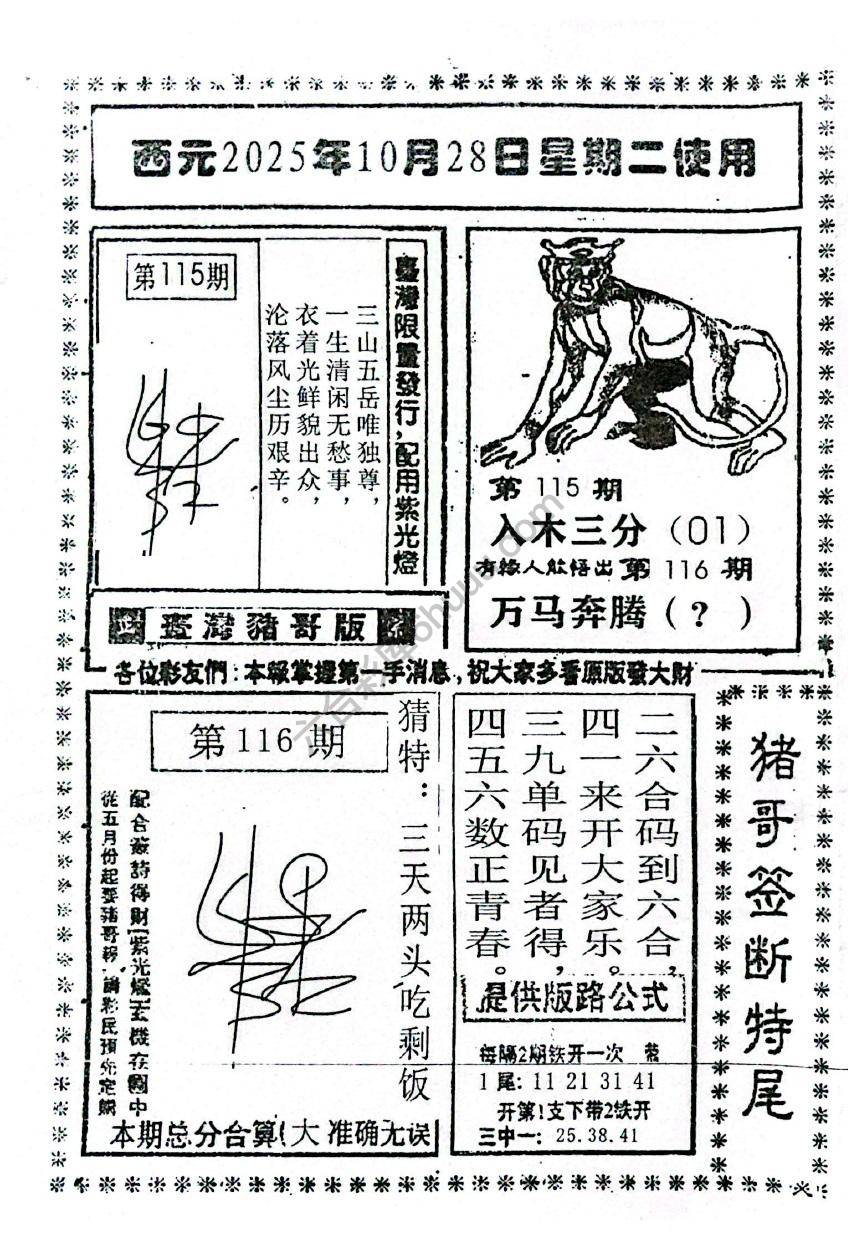 西元2025年10月28日星期二使用
第115期
臺灣限量發行,配用紫光燈
三山五岳唯独尊,
一生清闲无愁事,
衣着光鲜貌出众,
沦落风尘历艰辛。
第 115 期
入木三分(01)
有緣人能悟出 第 116 期
万马奔腾(?)
臺灣豬哥版
各位彩友們:本報掌握第一手消息,祝大家多看原版發大財
第 116 期
猜特:三天两头吃剩饭
配合簽詩得財(紫光燈)玄機在圖中
從五月份起要豬哥報 請彩民預先定購
本期总分合算(大 准确无误
二六合码到六合,
四一来开大家乐。
三九单码见者得,
四五六数正青春。
提供版路公式
每隔2期铁开一次 带
1尾:11 21 31 41
开第1支下带2铁开
三中一:25.38.41
猪哥签断特尾
六合彩库6huuu.com